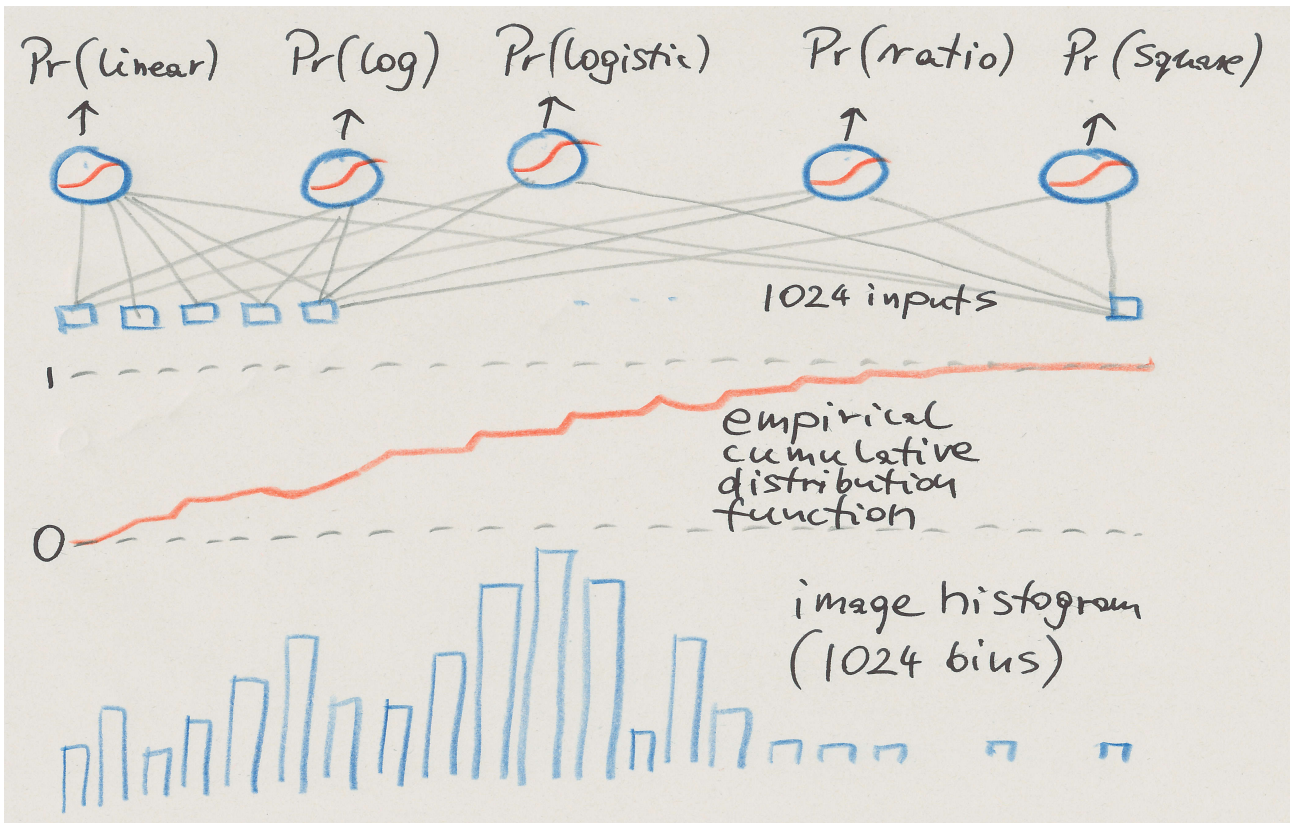 Pr(linear) Pr(log) Pr(logistic) Pr(ratio) Pr(square)
1024 inputs
1
empirical
cumulative
distribution
function
0
image histogram
(1024 bins)